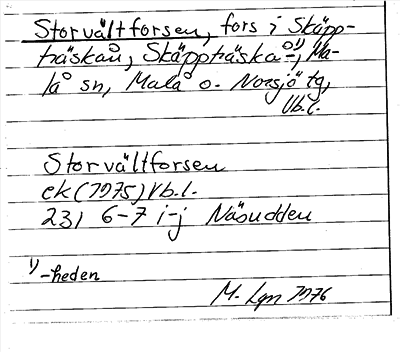 Storvältforsen, fors i Skäpp-
träskån, Skäppträskå-¹⁾, Ma-
lå sn, Malå o. Norsjö tg,
Vb.l.
Storvältforsen
ek (1975) Vb.l.
23I 6-7 i-j Näsudden
¹⁾-heden
M. Lgn 1976